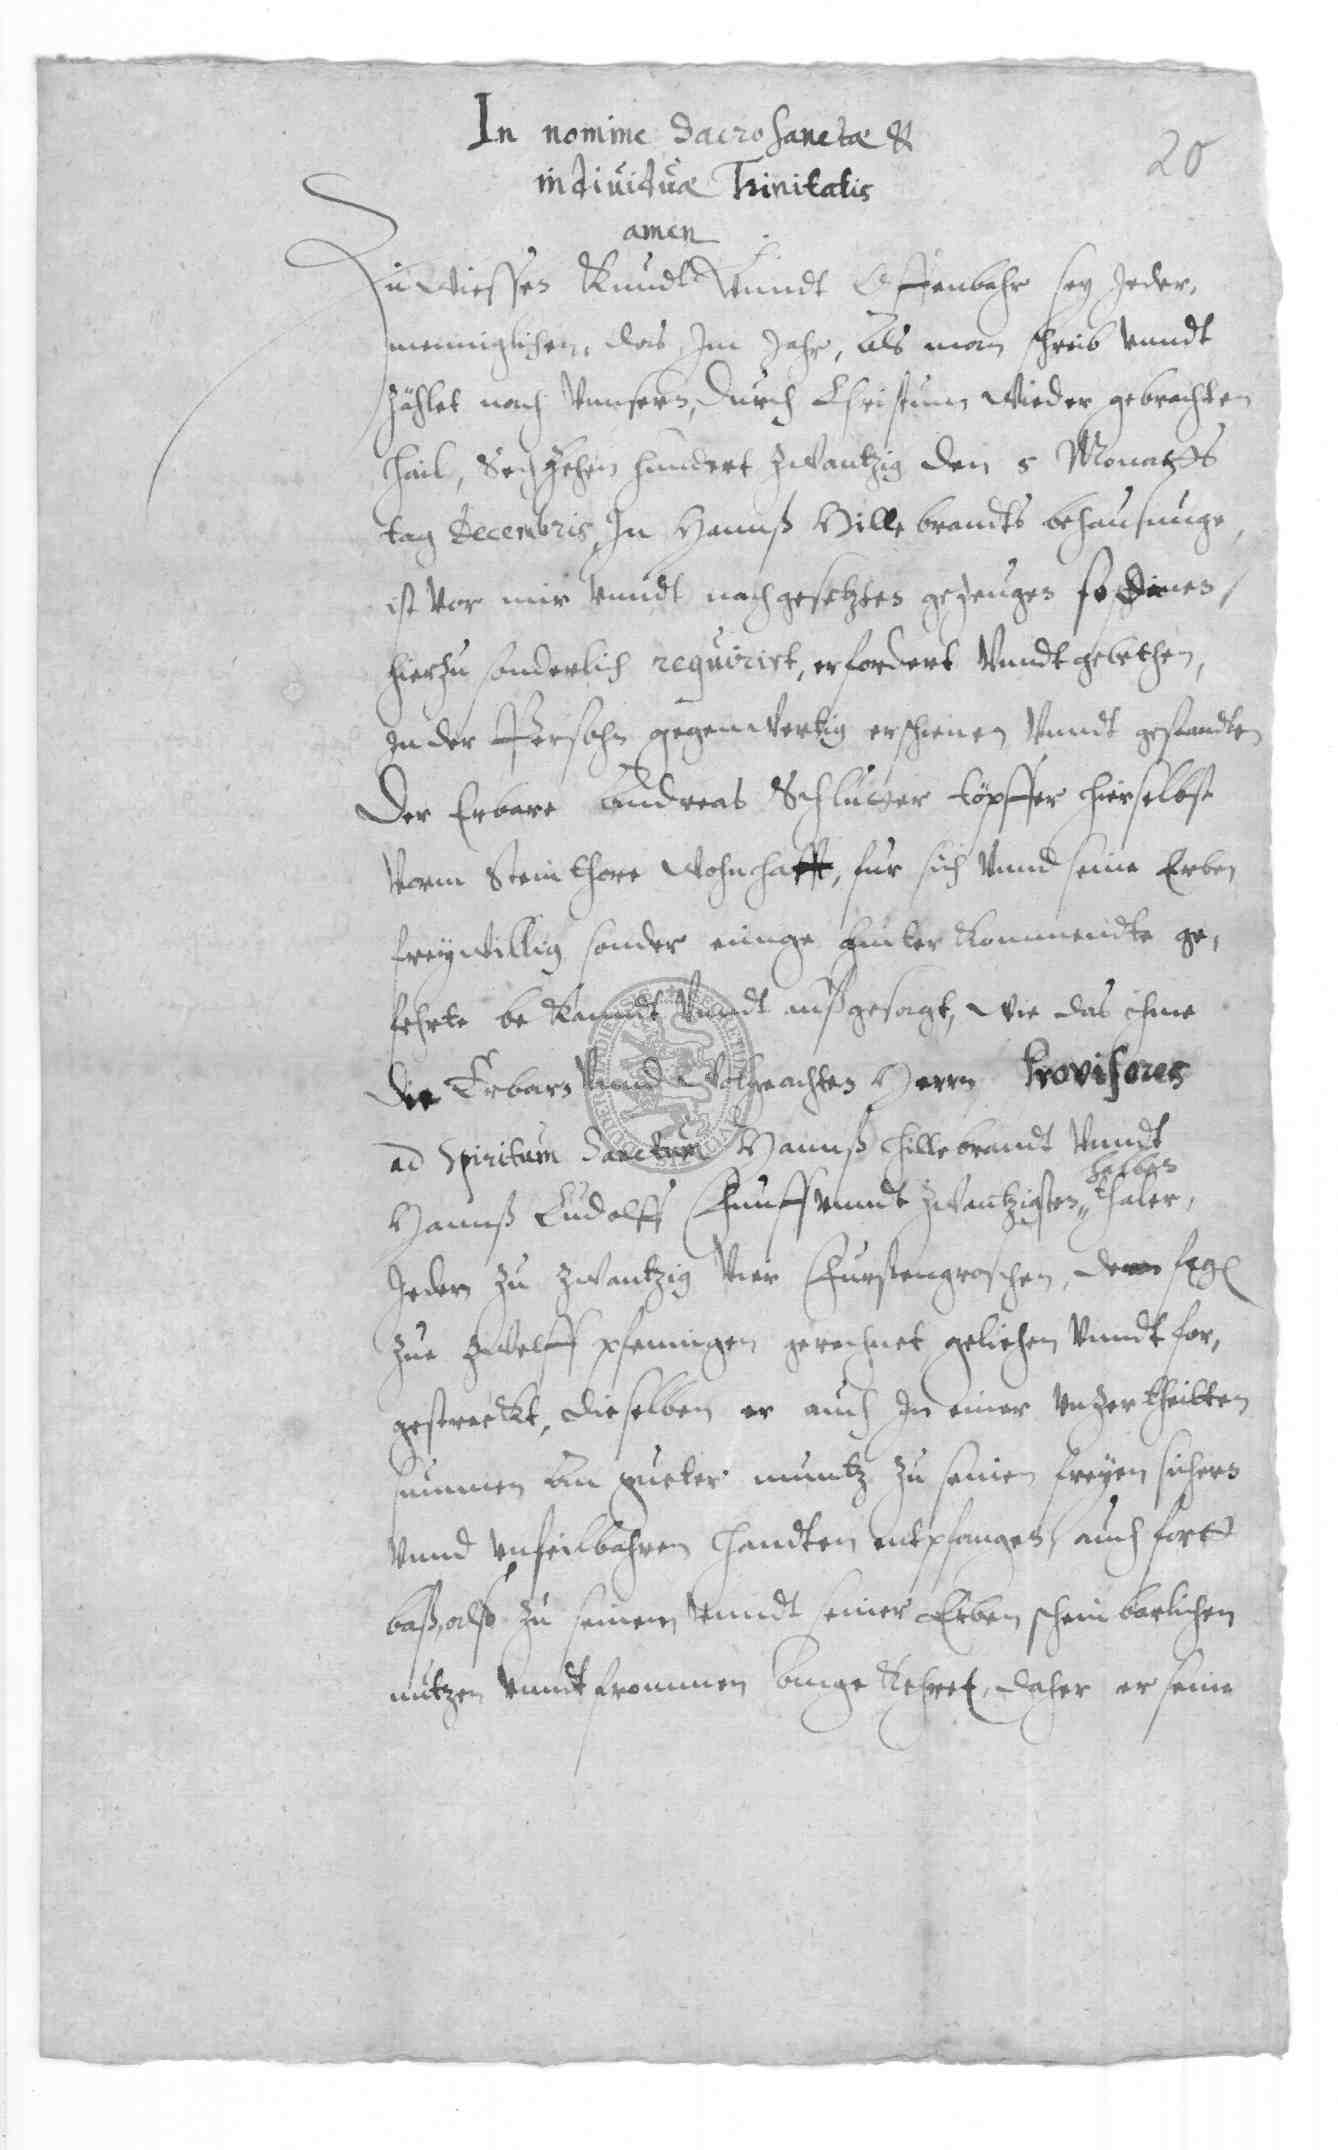 In nomine Sacrosanctæ &
individuæ Trinitatis
amen
20
Zu wiessen Kundt Vnndt Offenbahr sey Jeder,
menniglichen, das Im Jahr, als man schreib vnndt
zählet nach Vnnsern, durch Christum wieder gebrachten
Hail, Sechzehen hundert zwantzig den 5 Monats
tag Decembris, In Hannß Hillebrandts behausunge,
ist vor mir vnndt nachgesetzten gezeugen so
hierzu sonderlich requirirt, erfordert Vnndt gebethen,
In der Persohn gegenwertig erschienen Vnndt gestandten
Der Erbare Andreas Schlüter töpffer hierselbst
vorm Steinthore wohnhafft, fur sich Vnnd seine Erben
freywillig sonder einige hinterkommendte ge,
fehrte bekanndt Vnndt außgesagt, wie das ihme
die Erbarn Vnnd Wolgeachten Herrn Provisores
ad Spiritum Sanctum Hannß Hillebrandt Vnndt
Hannß Ludolff Funffvnndt zwantzigsten halben thaler,
Jeden zu zwantzig vier Furstengroschen, den
zue zwelff pfennigen gerechnet geliehen Vnndt for,
gestreckt, dieselben er auch In einer vnzertheilten
summen An gueter muntz zu seinen freyen sichern
Vnnd vnfeilbahren Handten entpfangen, auch fort
baß, also zu seinem Vnndt seiner Erben scheinbarlichen
nutzen vnndt frommen angekehret, daher er seine